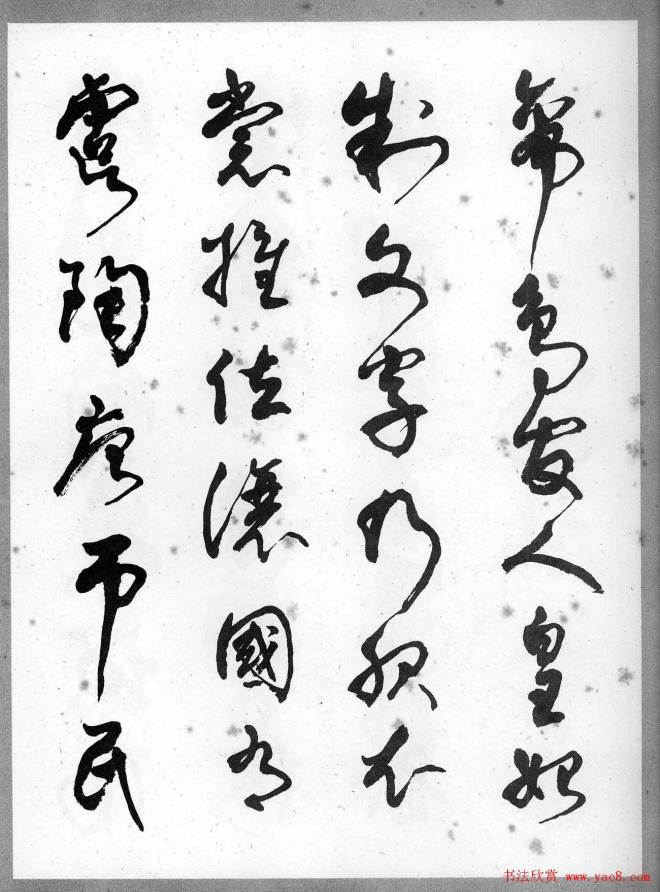 帝鳥官人皇始
制文字乃服衣
裳推位讓國有
虞陶唐吊民
书法欣赏 www.yac8.com